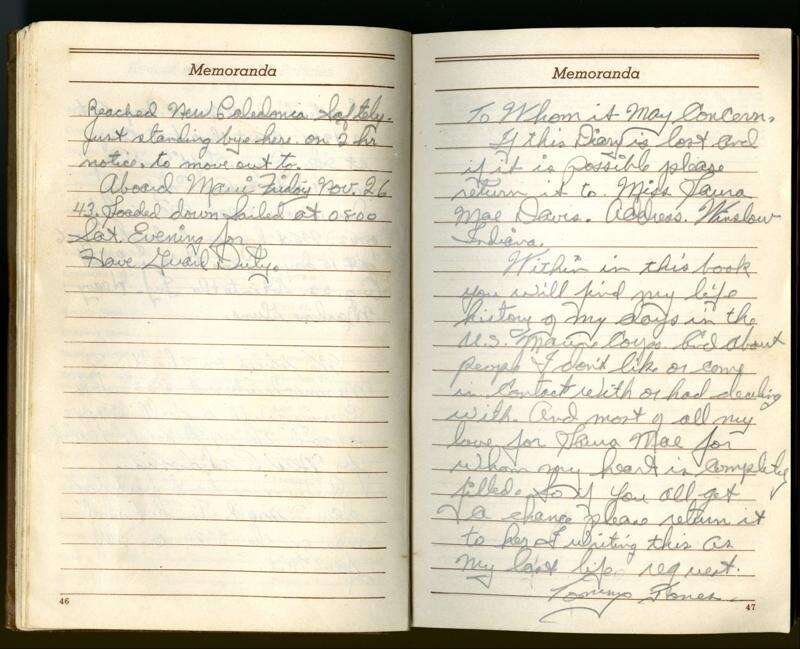 Memoranda
Reached New Caledonia Saftely.
Just standing bye here on 2 hr
notice, to move out to.
Aboard Maui Friday Nov. 26
43. Loaded down. Sailed at 0800
Sat. Evening for
Have Guard Duty.
46
Memoranda
To Whom it May Concern.
If this Diary is lost and
if it is possible please
return it to Miss Laura
Mae Davis. Address. Winslow
Indiana.
Within in this book
you will find my life
history of my days in the
U.S. Marine Corps. And about
people I don't like or come
in contact with or had dealing
with. And most of all my
love for Laura Mae for
whom my heart is completly
filled. So if you all get
a chance please return it
to her. I writing this as
my last life request.
Jones.
47